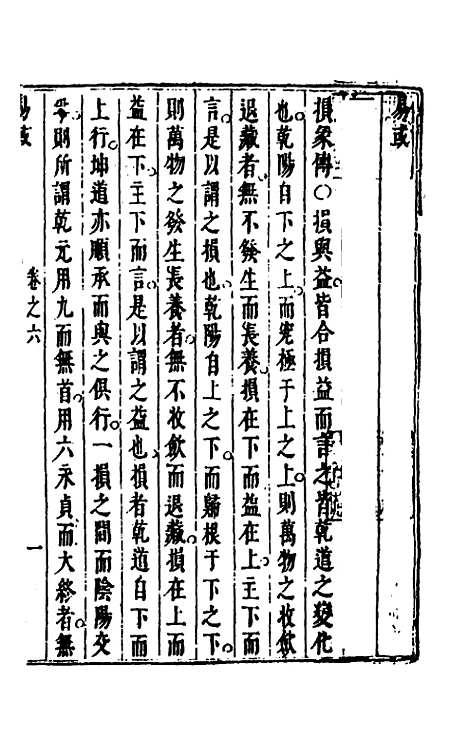 易或
損彖傳〇損與益皆合損益而言之皆乾道之變化
也乾陽自下之上而究極于上之上則萬物之收歛
退藏者無不發生而長養損在下而益在上主下而
言是以謂之損也乾陽自上之下而歸根于下之下
則萬物之發生長養者無不收歛而退藏損在上而
益在下主下而言是以謂之益也損者乾道自下而
上行坤道亦順承而與之俱行一損之間而陰陽交
則所謂乾元用九而無首用六永貞而大終者無
易或
卷之六
一